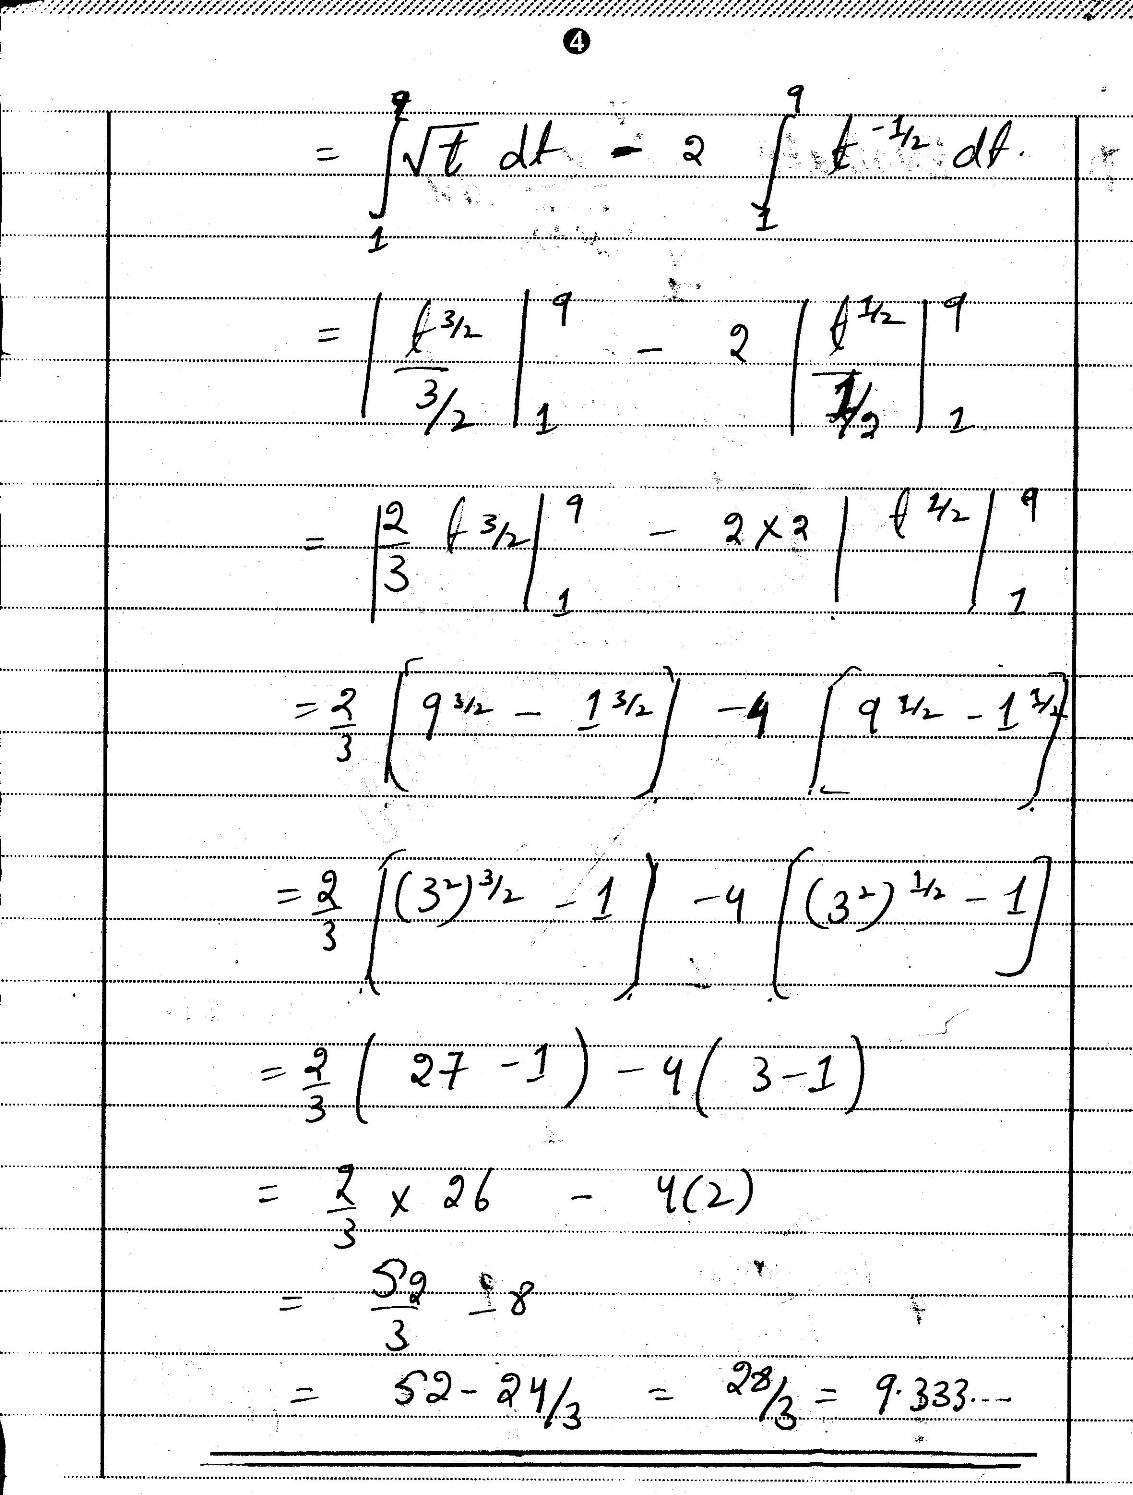 4
= ∫₁⁹ √t dt - 2 ∫₁⁹ t^(-1/2) dt.
= | t^(3/2) / (3/2) |₁⁹ - 2 | t^(1/2) / (1/2) |₁⁹
= | 2/3 t^(3/2) |₁⁹ - 2×2 | t^(1/2) |₁⁹
= 2/3 [ 9^(3/2) - 1^(3/2) ] - 4 [ 9^(1/2) - 1^(1/2) ]
= 2/3 [ (3²)^(3/2) - 1 ] - 4 [ (3²)^(1/2) - 1 ]
= 2/3 ( 27 - 1 ) - 4 ( 3 - 1 )
= 2/3 × 26 - 4(2)
= 52/3 - 8
= 52 - 24/3 = 28/3 = 9.333...